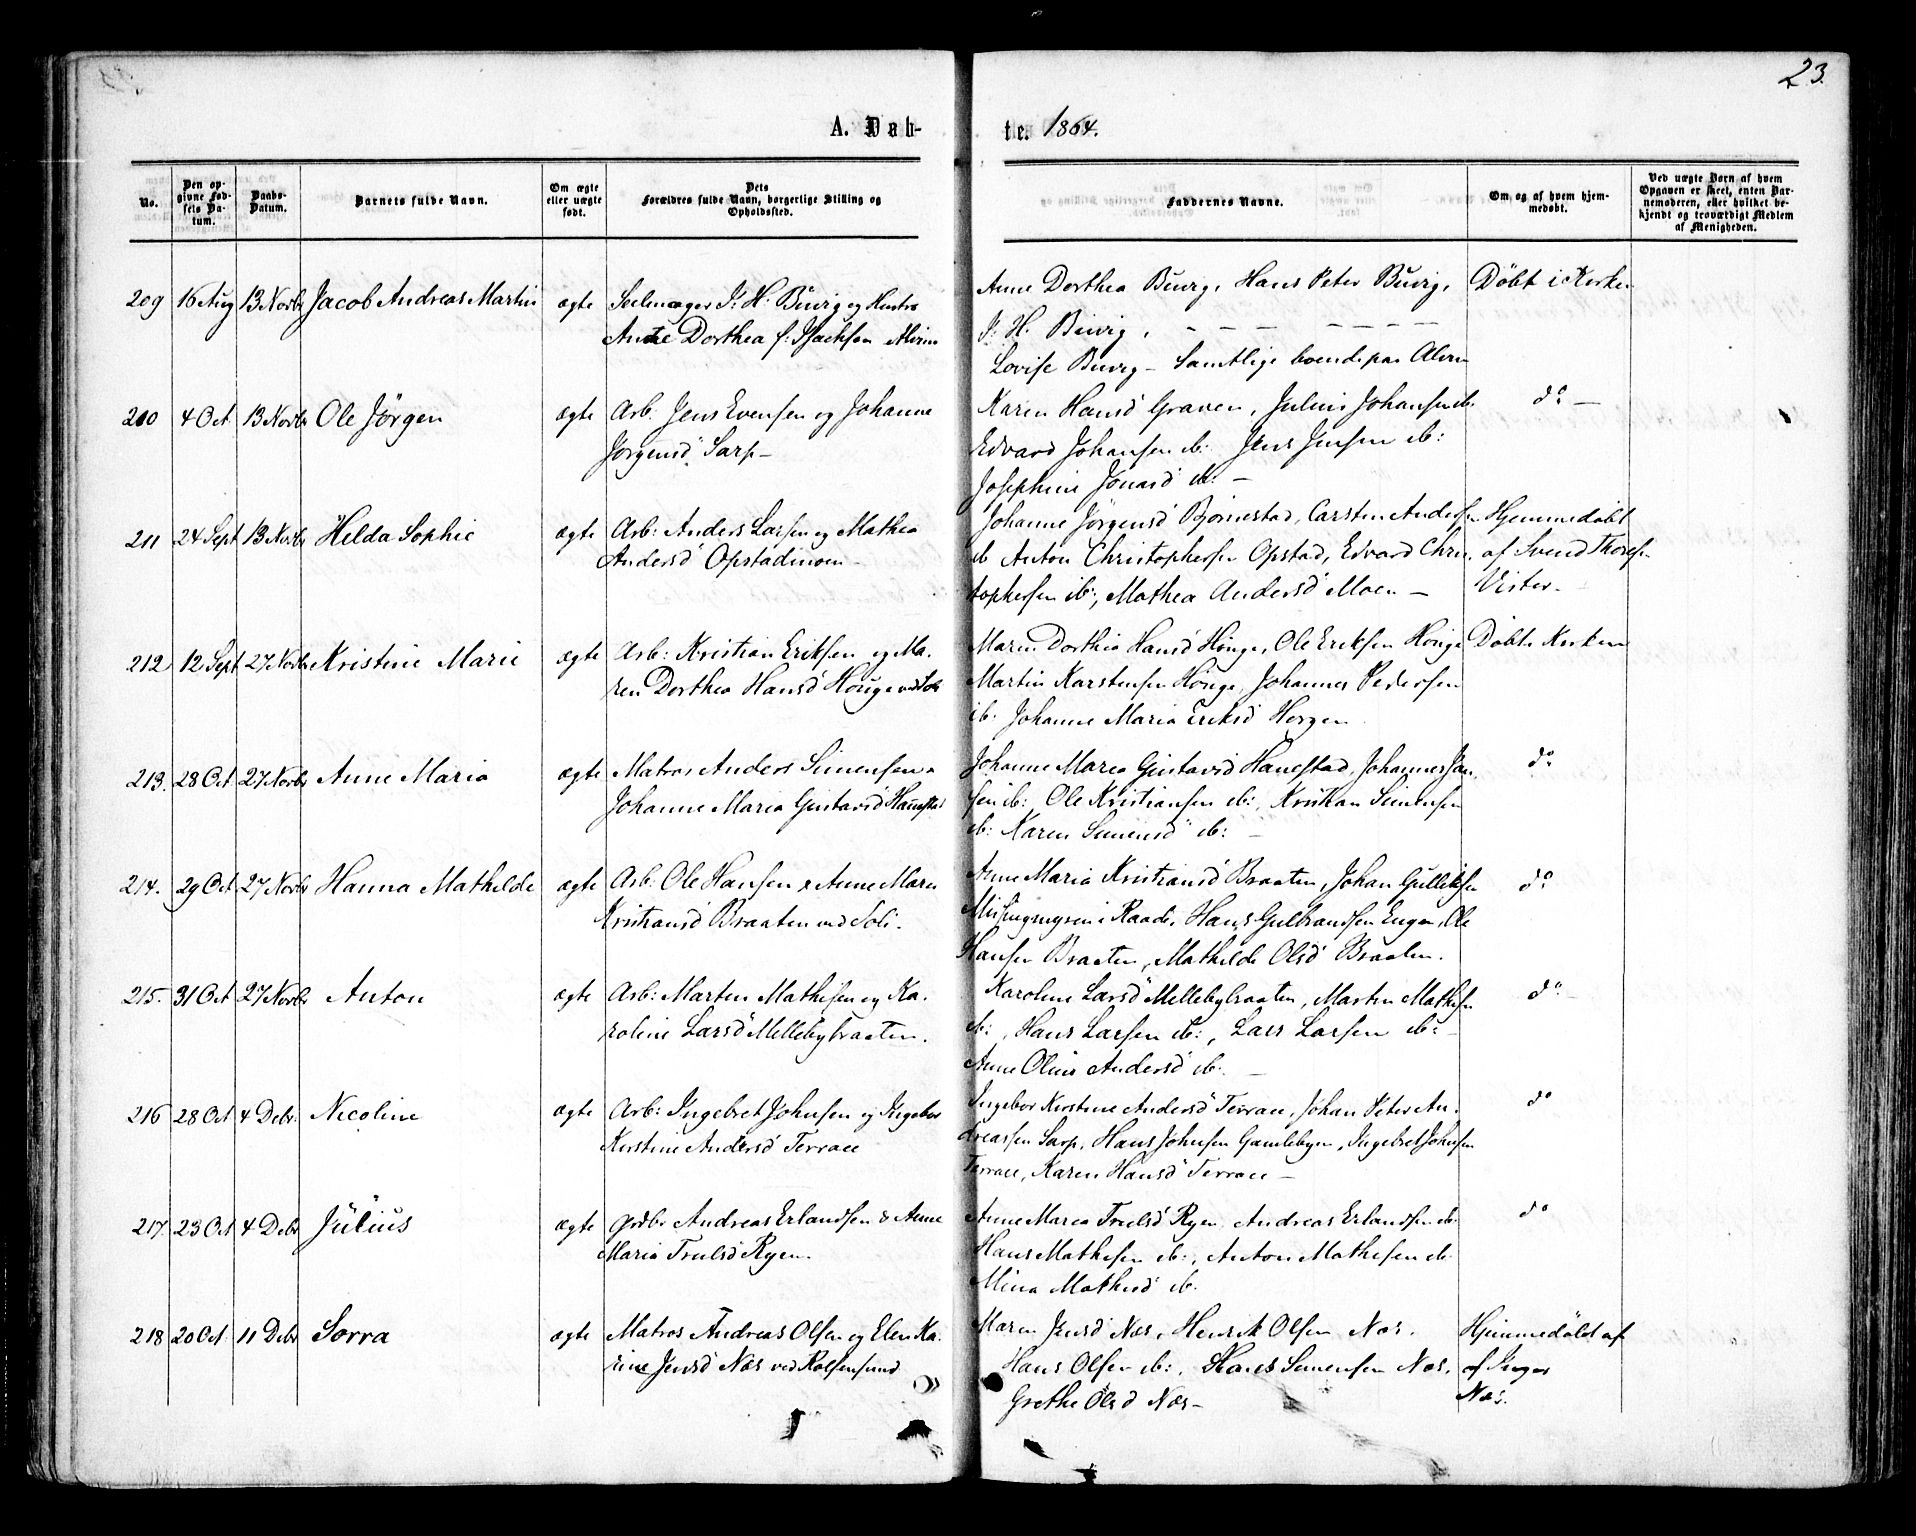 23.
A. Døb-
te. 1864.
No.
Den op-
givne Fød-
sels Da-
tum.
Daabs-
Datum.
Barnets fulde Navn.
Om ægte
eller uægte
født.
Dets
Forældres fulde Navn, borgerlige Stilling og
Opholdssted.
Faddernes Navne.
Om og af hvem hjem-
medøbt.
Ved uægte Børn af hvem
Opgaven er skeet, enten Bar-
nemoderen, eller hvilket be-
kjendt og troværdigt Medlem
af Menigheden.
209 16 Aug 13 Novbr Jacob Andreas Martin ægte J: H: Buvig og Hustru
Anne Dorthea f: Isachsen
Anne Dorthea Buvig, Hans Peter Buvig, Døbt i Kirken
J: H: Buvig, – – – – – – –
Lovise Buvig – Samtlige boende paa
210 4 Oct 13 Novbr Ole Jörgen ægte Arb: Jens Evensen og Johanne
Jørgensd Sarp –
Karen Hansd Graven, Julius Johansen ib. do –
Edvard Johansen ib: Jens Jensen ib:
Josephine Jonasd ib: –
211 24 Sept 13 Novbr Helda Sophie ægte Arb: Anders Larsen og Mathea
Andersd Opstadmoen –
Johanne Jörgensd Bjørnestad, Carsten Andersen Hjemmedøbt
ib Anton Christophersen Opstad, Edvard Chris- af Svend Thoresen
tophersen ib:, Mathea Andersd Moen – Vister. –
212 12 Sept 27 Novbr Kristine Marie ægte Arb: Kristian Eriksen og Ma-
ren Dorthea Hansd Houge ved Soli
Maren Dorthea Hansd Houge, Ole Eriksen Houge Døbt i Kirken
Martin Karstensen Houge, Johannes Pedersen
ib: Johanne Maria Eriksd Horgen
213. 28 Oct 27 Novbr Anne Maria ægte Matros Anders Simensen &
Johanne Maria Gustavsd Hauestad
Johanne Maria Gustavsd Hauestad, Johannes Jan- do
sen ib: Ole Kristiansen ib:, Kristian Simensen
ib: Karen Simensd ib: –
214. 29 Oct 27 Novbr Hanna Mathilde ægte Arb: Ole Hansen & Anne Maria
Kristiansd Braaten ved Soli.
Anne Maria Kristiansd Braaten, Johan Gulliksen do
i Raade, Hans Gulbrandsen Engen, Ole
Hansen Braaten, Mathilde Olsd Braaten.
215. 31 Oct 27 Novbr Anton ægte Arb: Martin Mathisen og Ka-
roline Larsd Mellebybraaten.
Karoline Larsd Mellebybraaten, Martin Mathisen do –
ib:, Hans Larsen ib:, Lars Larsen ib: –
Anne Oline Andersd ib. –
216 28 Oct 4 Debr: Nicoline ægte Arb: Ingebret Johnsen og Ingebor
Kirstine Andersd Terrace
Ingebor Kirstine Andersd Terrace, Johan Peter An- do
dreassen Sarp, Hans Johnsen Gamlebyen, Ingebret Johnsen
Terrace, Karen Hansd Terrace –
217. 23 Oct 4 Debr Julius ægte Grdbr Andreas Erlandsen & Anne
Maria Trulsd Ryen.
Anne Maria Trulsd Ryen, Andreas Erlandsen ib. do
Hans Mathisen ib:, Anton Mathisen ib
Mina Mathisd ib.
218 20 Oct. 11 Debr Sorra ægte Matros Andreas Olsen og Elen Ka-
rine Jensd Nes ved Rolfsøsund
Maren Jensd Nes, Henrik Olsen Nes. Hjemmedøbt af
Hans Olsen ib:, Hans Simensen Nes, af Inger
Grethe Olsd Nes – Nes.